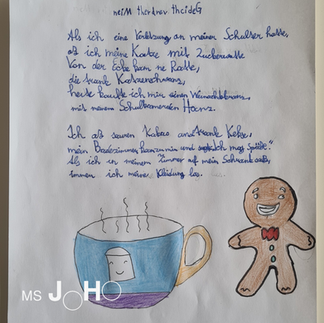 mieM tnorhnev tdcideG
Als ich eine an meiner Schulter
aß ich meine Katze mit Zuckerwatte
Von der Ecke kam ne Ratte,
die trank Katzenschwanz,
heute kaufte ich mir einen Weihnachtskranz,
mit neuem Schulkameraden Hanz.
Ich aß sauren Kakao und trank Kekse,
mein Badezimmer und ich mag
Als ich in meinem Zimmer auf mein Schrank saß,
ich meine Kleidung las.
MS JoHo